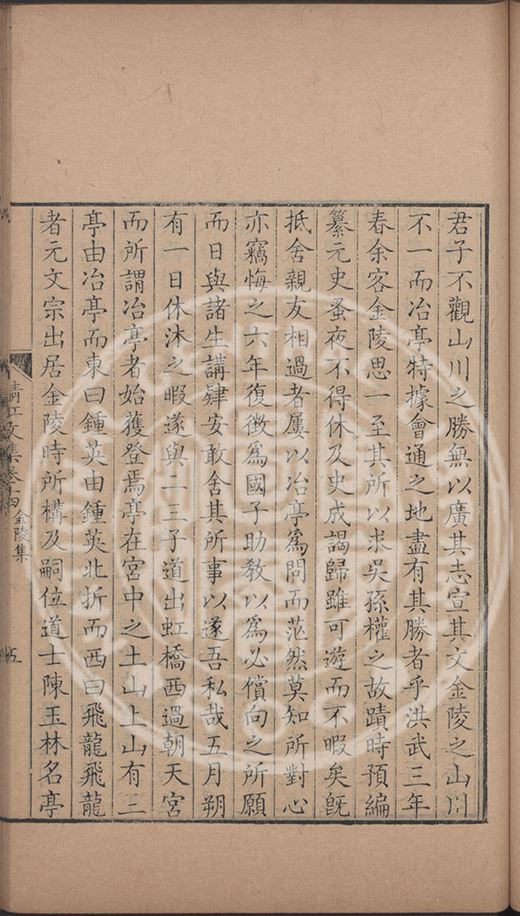 君子不觀山川之勝無以廣其志宣其文金陵之山川
不一而冶亭特據會通之地盡有其勝者乎洪武三年
春余客金陵思一至其所以求吳孫權之故蹟時預編
纂元史蚤夜不得休及史成謁歸雖可遊而不暇矣旣
抵舍親友相過者屢以冶亭爲問而茫然莫知所對心
亦竊悔之六年復徵爲國子助敎以爲必償向之所願
而日與諸生講肄安敢舍其所事以遂吾私哉五月朔
有一日休沐之暇遂與二三子道出虹橋西過朝天宮
而所謂冶亭者始獲登焉亭在宮中之土山上山有三
亭由冶亭而東曰鍾英由鍾英北折而西曰飛龍飛龍
者元文宗出居金陵時所構及嗣位道士陳玉林名亭
清江文集卷十四 金陵集 五